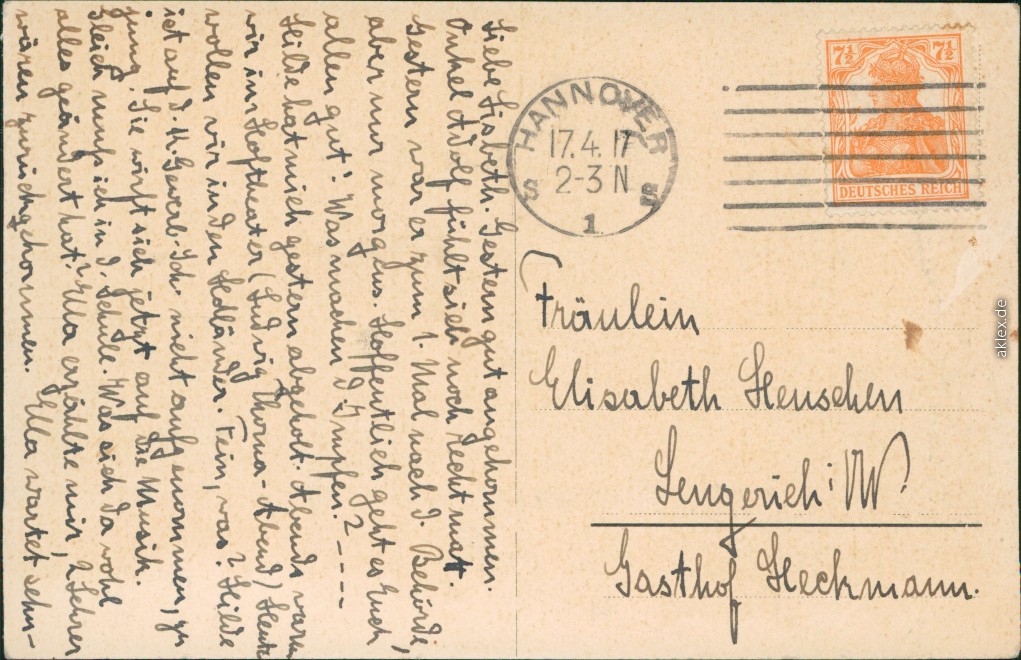 Liebe Lisbeth. Gestern gut angekommen.
Onkel Adolf fühlt sich noch recht matt.
Gestern war er zum 1. Mal nach d. Behörde,
aber nur morgens. Hoffentlich geht es Euch
allen gut! Was machen d. Impfen? ----
Hilde hat mich gestern abgeholt. Abends waren
wir im Hoftheater (Ludwig Thoma-Abend) Heute
wollen wir in den Fein, was? Hilde
ist auf d. K. Gewerb. Sch. nicht aufgenommen, zu
jung. Sie wirft sich jetzt auf die Musik.
Gleich muß ich in d. Schule. Was sich da wohl
alles geändert hat? Ella erzählte mir, 2 Lehrer
wären zurückgekommen. Ella wartet sehn-
HANNOVER
17.4.17
2-3 N
S
1
7½ 7½
DEUTSCHES REICH
Fräulein
Elisabeth Henschen
Lengerich i/W.
Gasthof Heckmann.
aklex.de